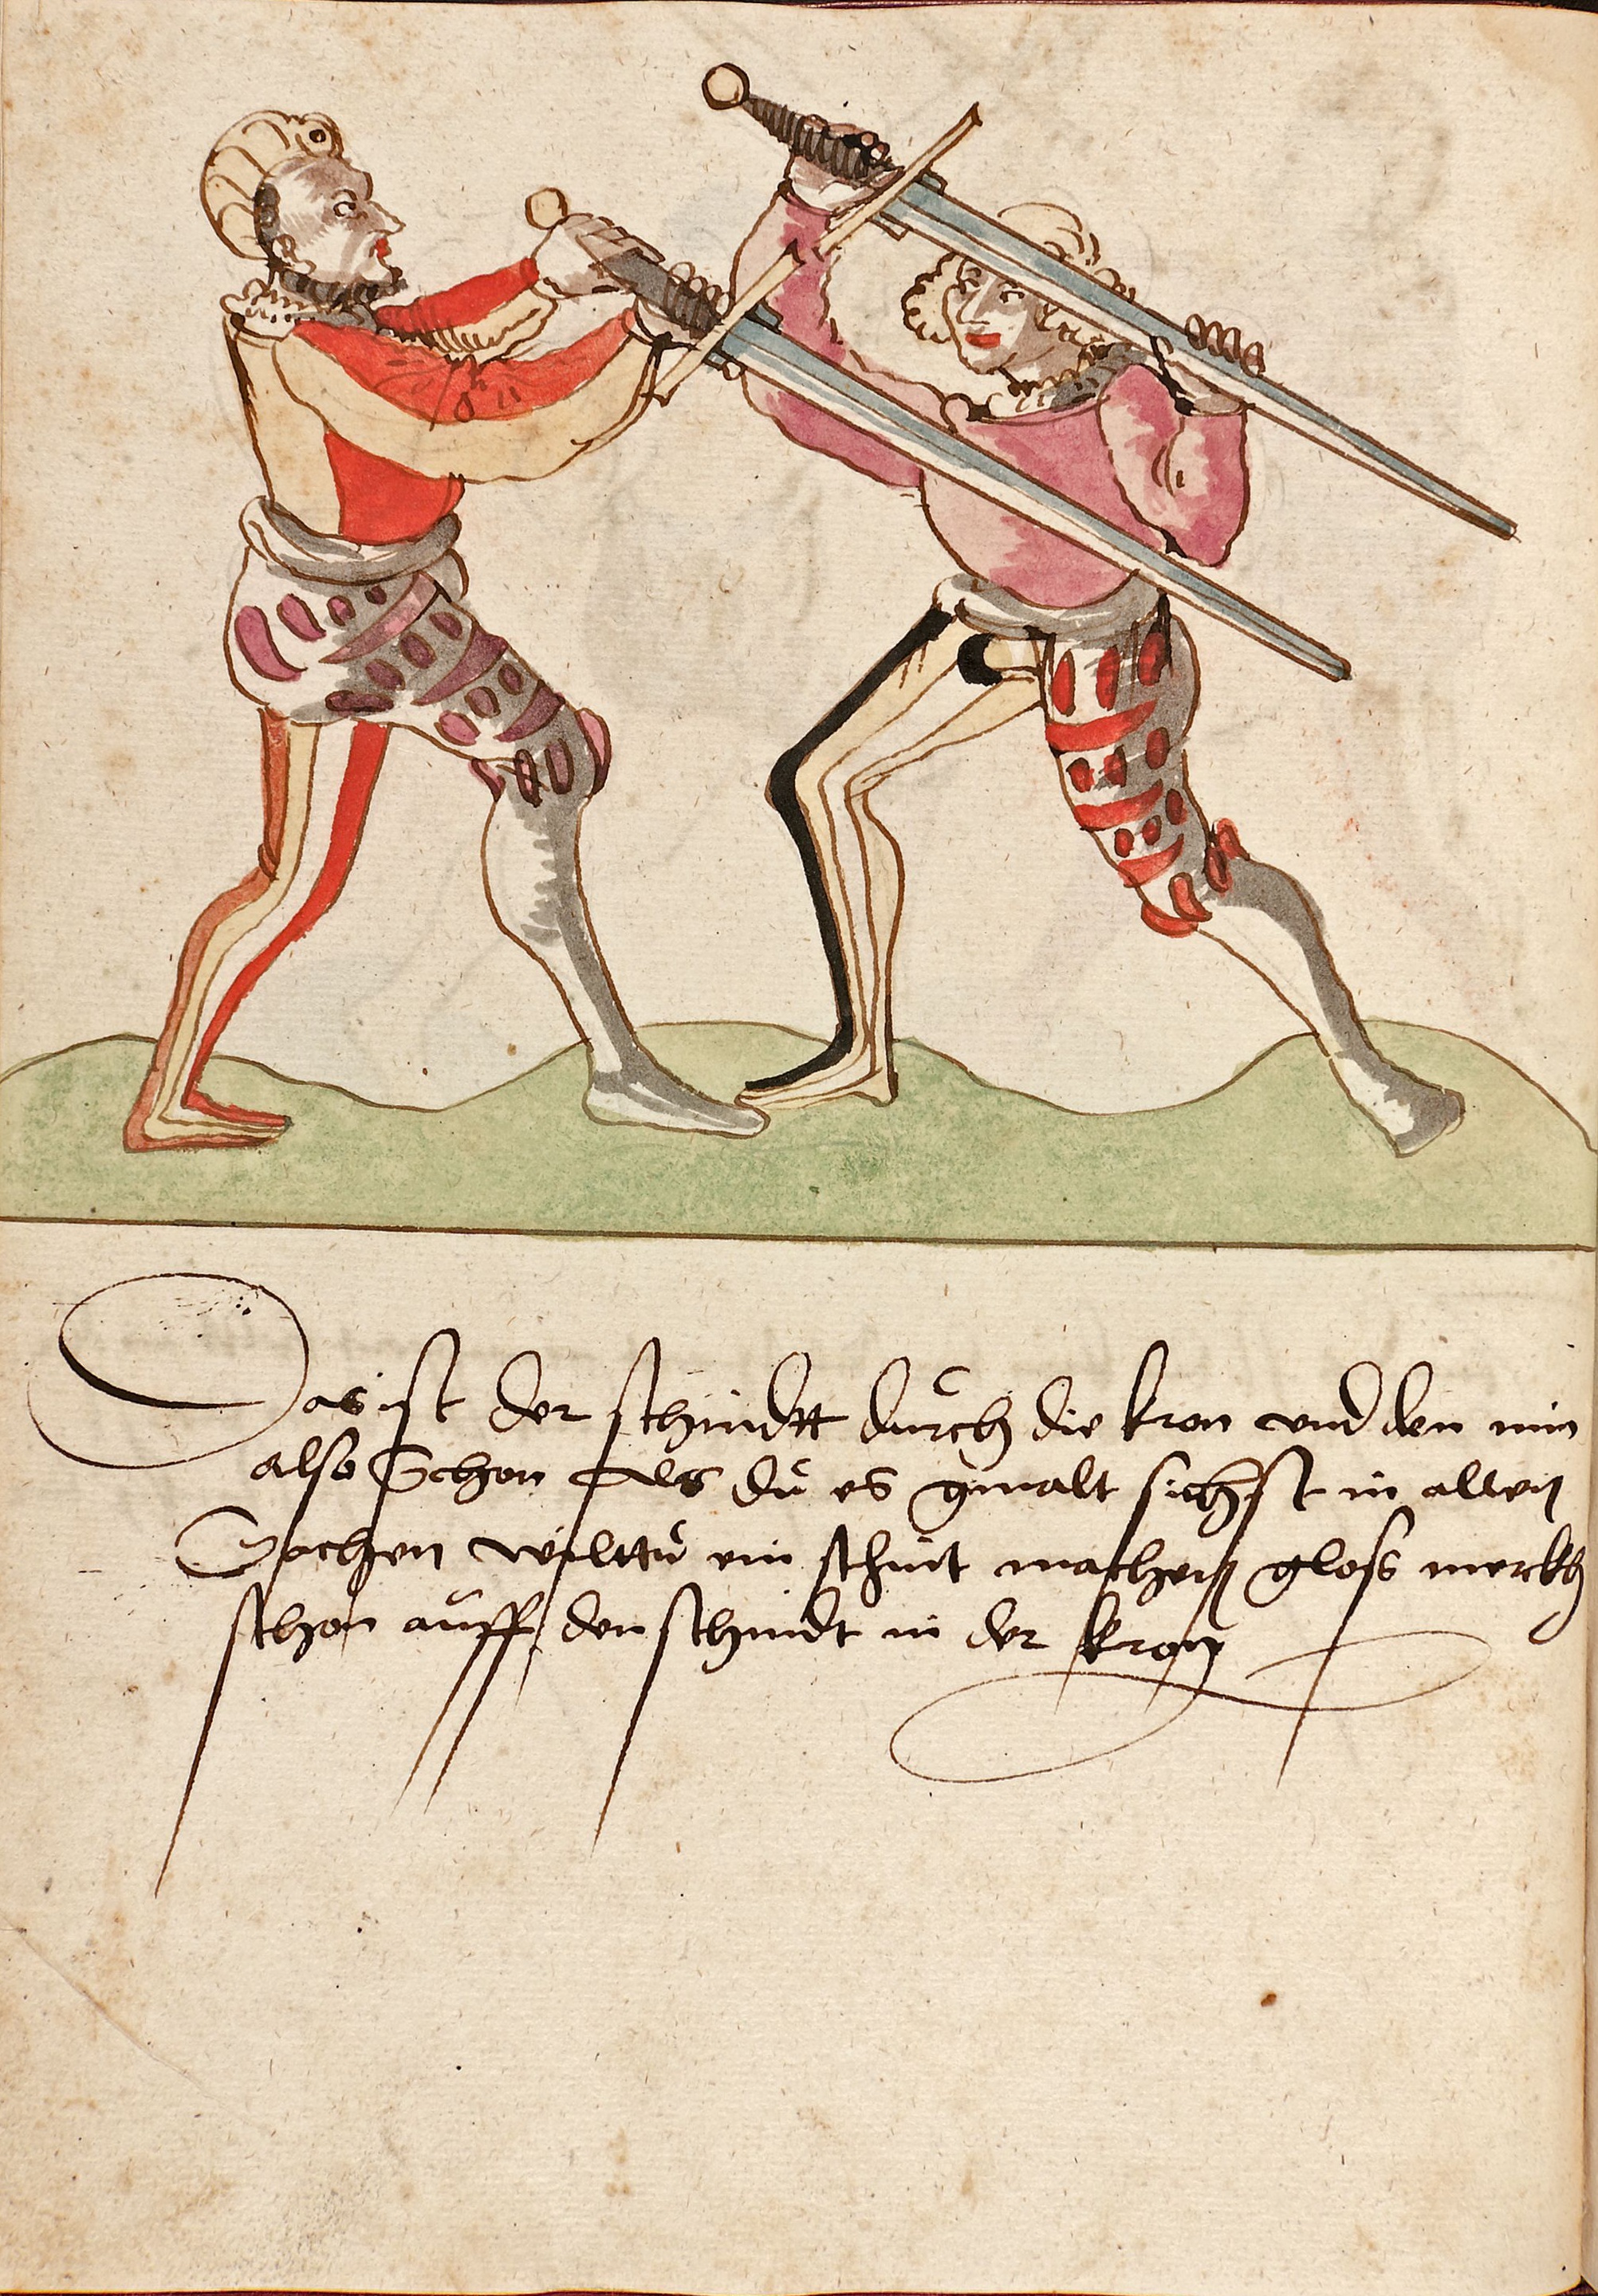 Das ist der schnidtt durch die kron vnnd den nim
also Schon Als du es gmalt sichst in allen
Sachen wilttu ein schnit machen gloss merckh
schon auff den schnidt in der kron